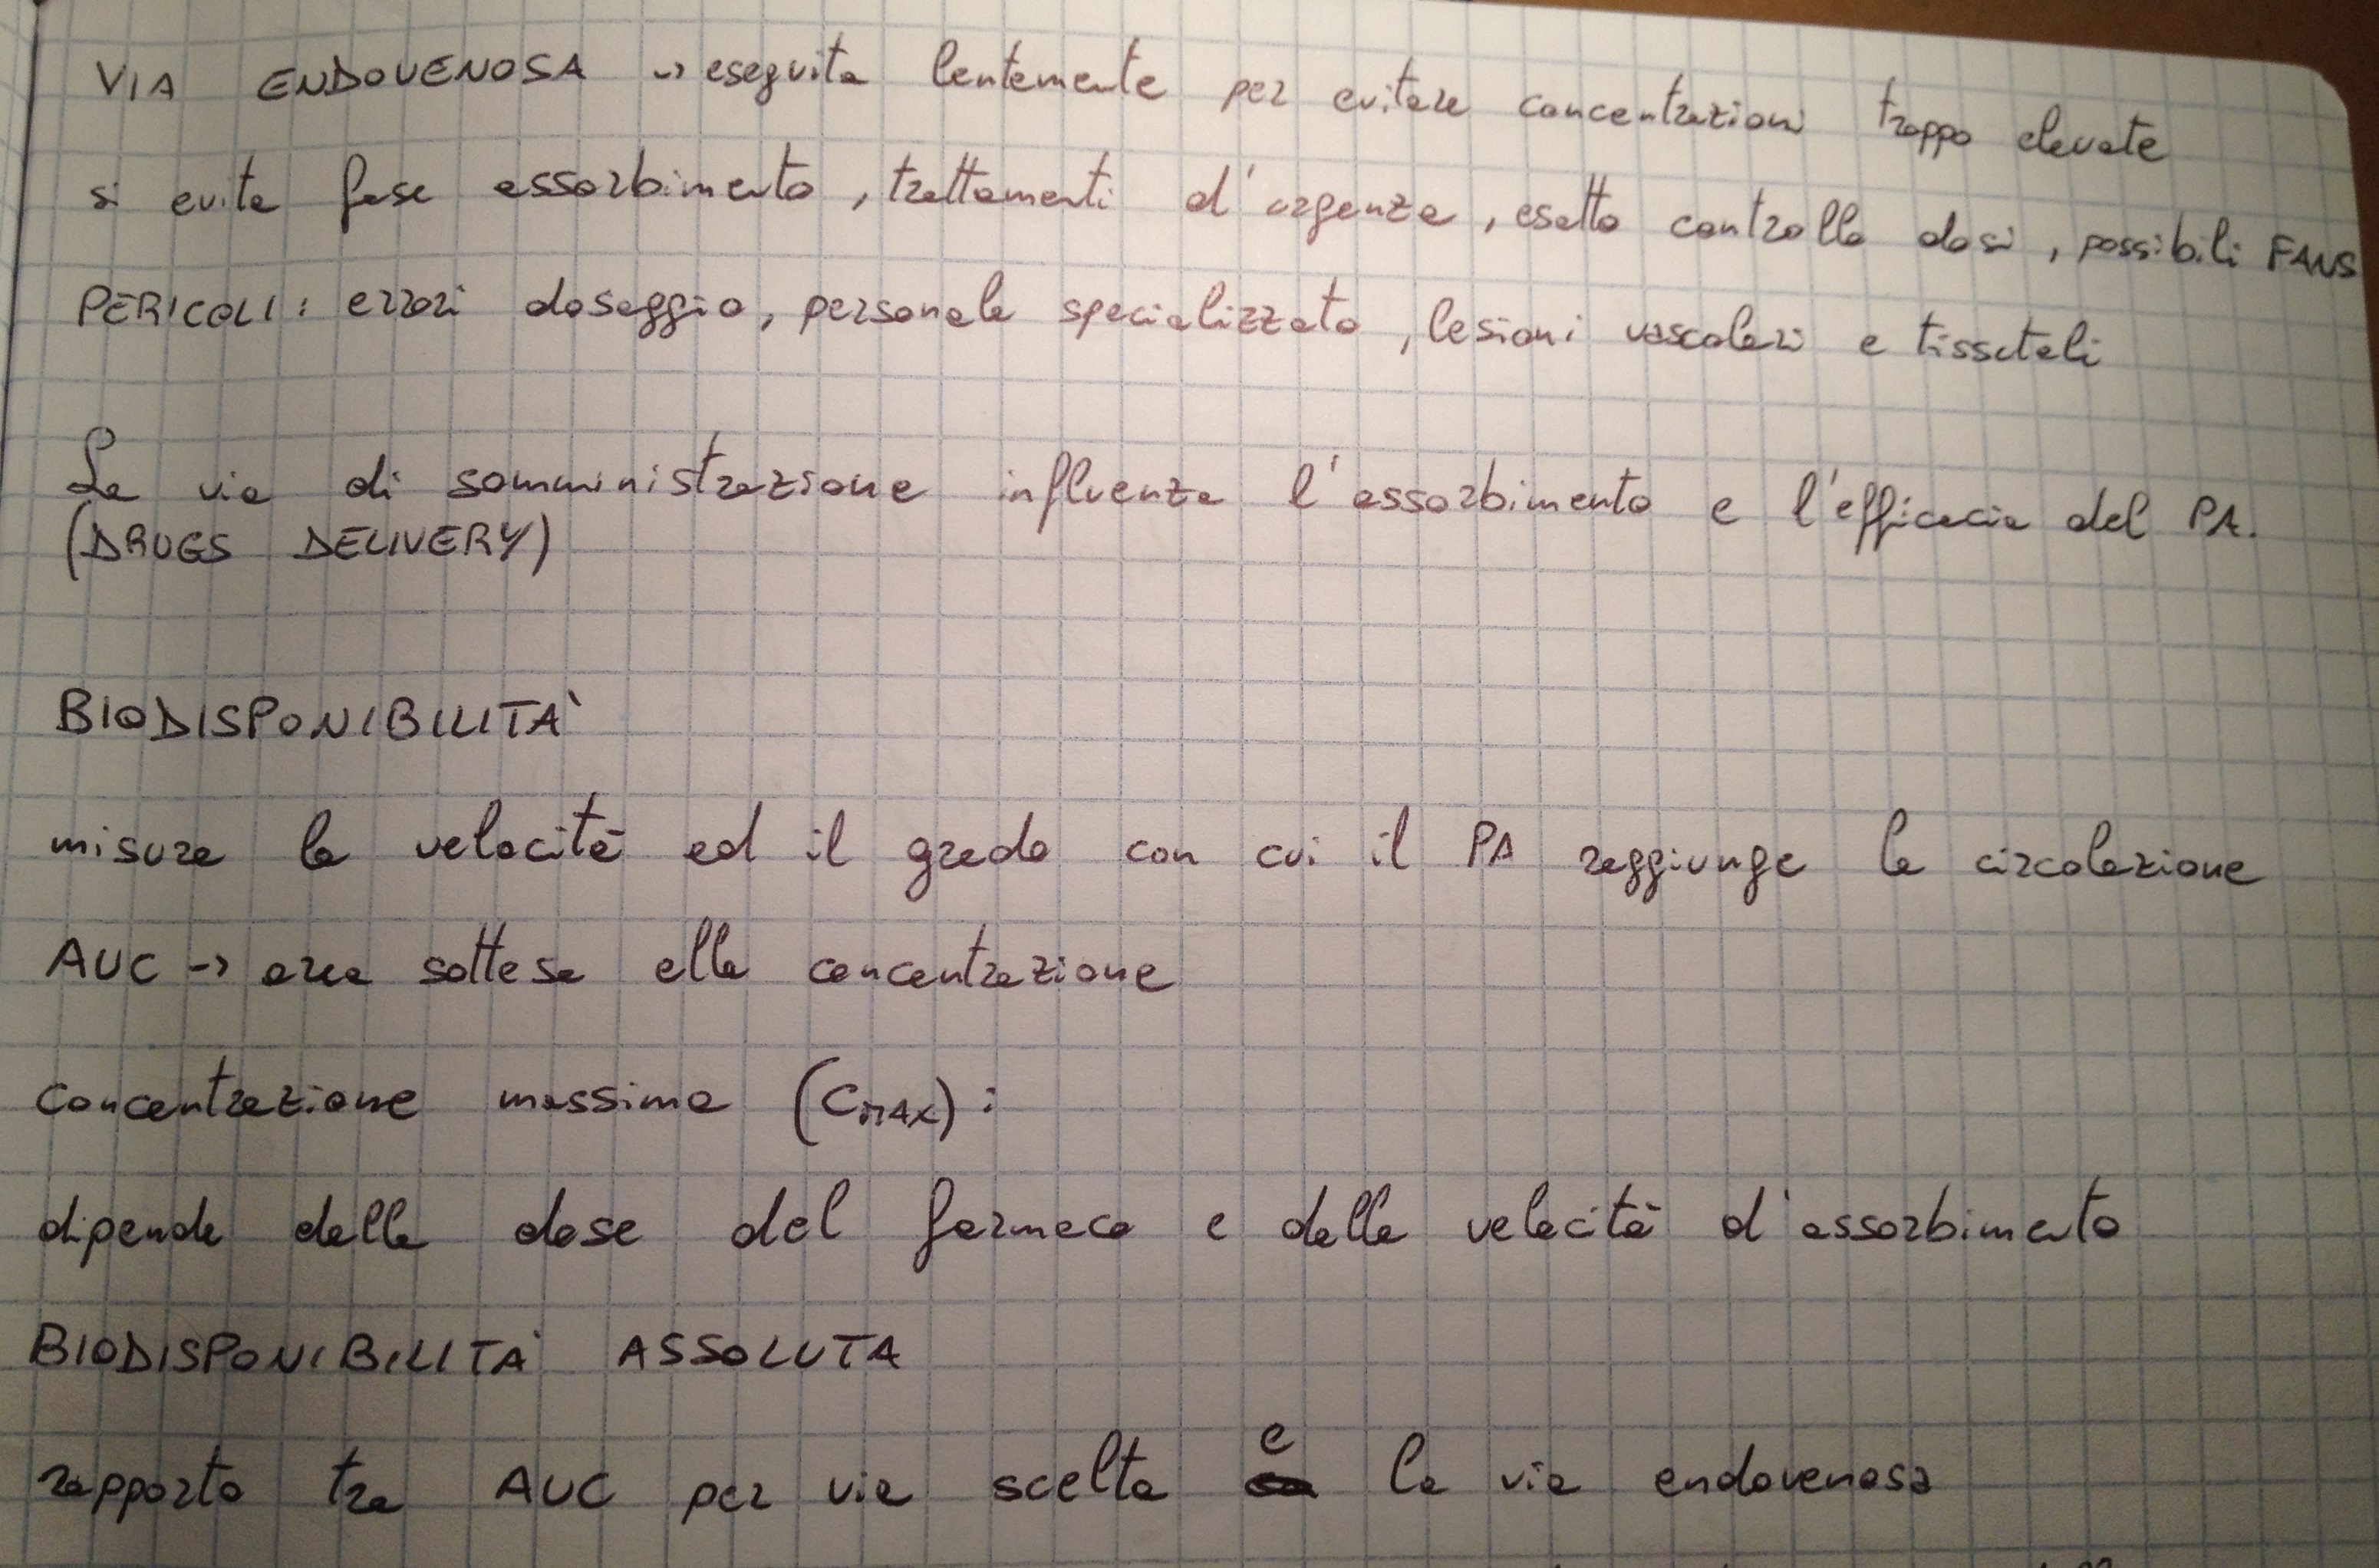 VIA ENDOVENOSA -> eseguita lentemente per evitare concentrazioni troppo elevate
si evita fase assorbimento, trattamenti d'urgenza, esatto controllo dosi, possibili FANS
PERICOLI: errori dosaggio, personale specializzato, lesioni vascolari e tissutali
La via di somministrazione influenza l'assorbimento e l'efficacia del PA.
(DRUGS DELIVERY)
BIODISPONIBILITA'
misura la velocità ed il grado con cui il PA raggiunge la circolazione
AUC -> area sottesa alla concentrazione
concentrazione massima (CMAX):
dipende dalla dose del farmaco e dalla velocità d'assorbimento
BIODISPONIBILITA' ASSOLUTA
rapporto tra AUC per via scelta e la via endovenosa